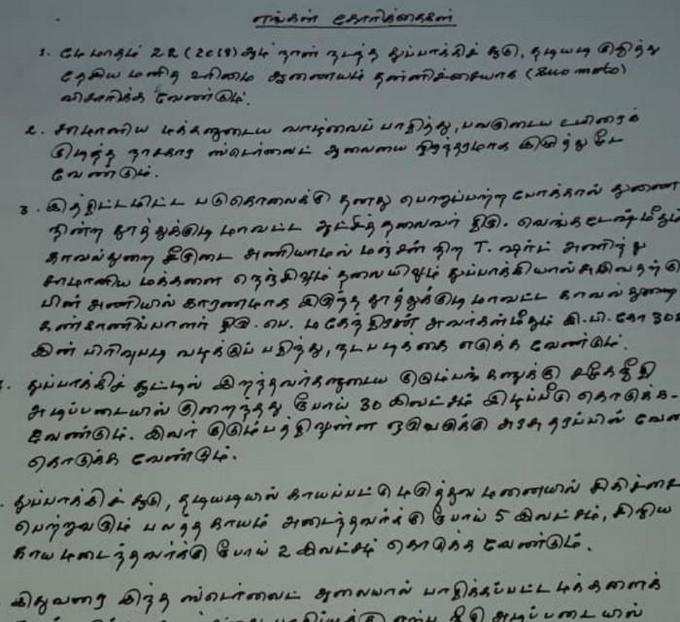 எங்கள் கோரிக்கைகள்
1. மே மாதம் 22 (2018) ஆம் நாள் நடந்த துப்பாக்கிச் சூடு, தடியடி குறித்து
தேசிய மனித உரிமை ஆணையம் தன்னிச்சையாக (Suo moto)
விசாரிக்க வேண்டும்.
2. சாமானிய மக்களுடைய வாழ்வைப் பாதித்து, பலருடைய உயிரைக்
குடித்த நாசகார ஸ்டெர்லைட் ஆலையை நிரந்தரமாக இழுத்து மூட
வேண்டும்.
3. இத்திட்டமிட்ட படுகொலைக்கு தனது பொறுப்பற்ற போக்கால் துணை
நின்ற தூத்துக்குடி மாவட்ட ஆட்சித் தலைவர் திரு. வெங்கடேஷ் மீதும்
காவல்துறை சீருடை அணியாமல் மஞ்சள் நிற T. ஷர்ட் அணிந்து
சாமானிய மக்களை நெஞ்சிலும் தலையிலும் துப்பாக்கியால்
பின் அணியில் காரணமாக இருந்த தூத்துக்குடி மாவட்ட காவல் துறை
கண்காணிப்பாளர் திரு. பெ. மகேந்திரன் அவர்கள் மீதும் இ.பி.கோ 302
இன் பிரிவுபடி வழக்குப் பதிந்து, நடபடிக்கை எடுக்க வேண்டும்.
துப்பாக்கிச் சூட்டில் இறந்தவர்களுடைய குடும்பங்களுக்கு சமூகநீதி
அடிப்படையில் குறைந்தது ரூபோய் 30 இலட்சம் இழப்பீடு கொடுக்க-
வேண்டும். இவர் குடும்பத்திலுள்ள ஒருவருக்கு அரசு தரப்பில்
கொடுக்க வேண்டும்.
துப்பாக்கிச் சூடு, தடியடியில் காயப்பட்டு மருத்துவ மனையில் சிகிச்சை
பெற்றுவரும் பலத்த காயம் அடைந்தவர்க்கு ரூபோய் 5 இலட்சம், சிறிய
காயமடைந்தவர்க்கு ரூபோய் 2 இலட்சம் கொடுக்க வேண்டும்.
இதுவரை இந்த ஸ்டெர்லைட் ஆலையால் பாதிக்கப்பட்ட மக்களைக்
அடிப்படையில்